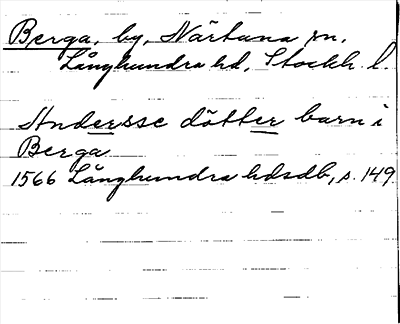 Berga, by, Närtuna sn,
Långhundra hd, Stockh. l.
Andersse dötter barn i
Berga
1566 Långhundra hdsdb, s. 149.